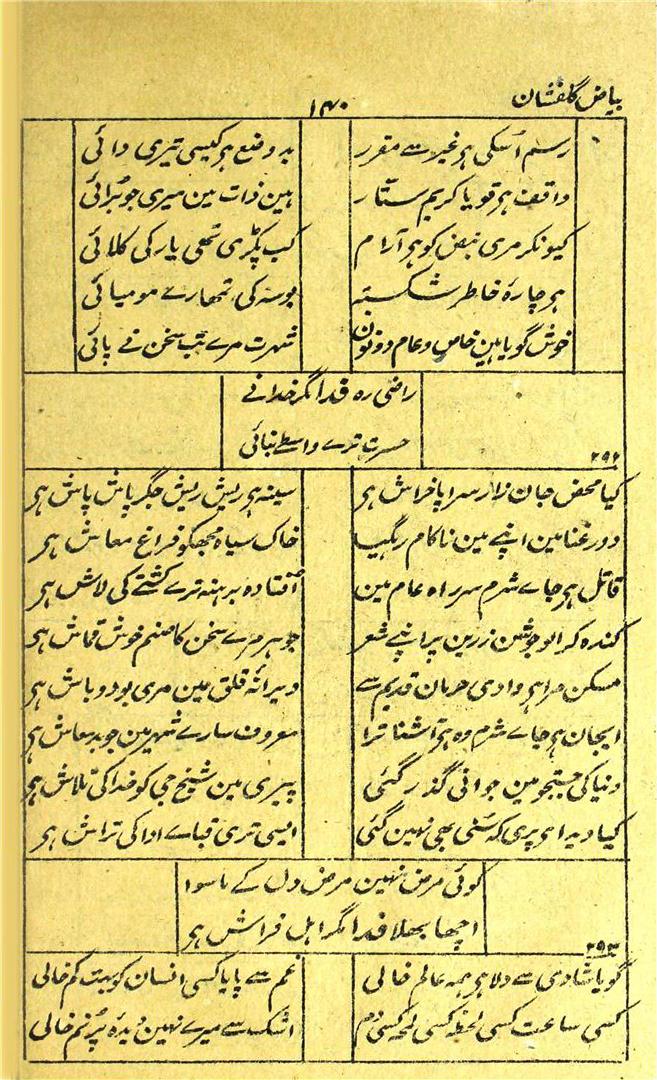 بیاض گلفشان
۱۴۰
رسم اُسکی ہر غیر سے مقرر
بد وضع ہر کیسی تیری دائی
واقف ہر تو یا کریم ستار
ہین ذات مین میری جو بُرائی
کیونکر مری نبض کو ہو آرام
کب پکڑی تھی یار کی کلائی
ہر چارۂ خاطر شکستہ
بوسہ کی تمھارے مومیائی
خوش گویا ہین خاص و عام دونون
شہرت مرے تب سخن نے پائی
راضی رہ فدا گر خدا نے
حسرت ترے واسطے بنائی
۲۹۲
کیا محض جان زار سراپا خراش ہر
سینہ ہر ریش ریش جگر پاش پاش ہر
دور غنا مین اپنے مین ناکام رہگیا
خاک سیاہ مجھکو فراغ معاش ہر
قاتل ہر جاے شرم سر راہ عام مین
اُفتادہ برہنہ ترے کشتے کی لاش ہر
کندہ کرالو جوشن زرین پر اپنے شعر
جوہر مرے سخن کا صنم خوش قماش ہر
مسکن مرا ہر وادی حرمان قدیم سے
ویرانۂ قلق مین مری بود و باش ہر
ایجان ہر جاے شرم وہ ہر آشنا ترا
معروف سارے شہر مین جو بدمعاش ہر
دنیا کی جستجو مین جوانی گذر گئی
پیری مین شیخ جی کو خدا کی تلاش ہر
کیا دیدا ہر پری کہ سُنی بھی نہین گئی
ایسی تری قباے ادا کی تراش ہر
کوئی مرض نہین مرض دل کے ماسوا
اچھا بھلا فدا گر اہل فراش ہر
۲۹۳
گویا شادی سے دلا ہر ہمہ عالم خالی
غم سے پایا کسی انسان کو بہت کم خالی
کسی ساعت کسی لحظہ کسی لمحہ کسی دم
اشک سے میرے نہین دیدۂ پُرنم خالی